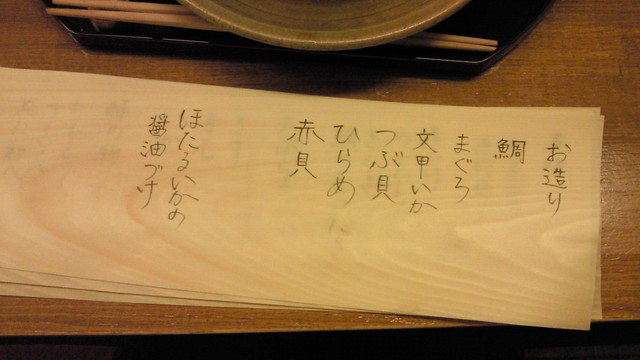 お造り
鯛
まぐろ
文甲いか
つぶ貝
ひらめ
赤貝
ほたるいかの
醤油づけ